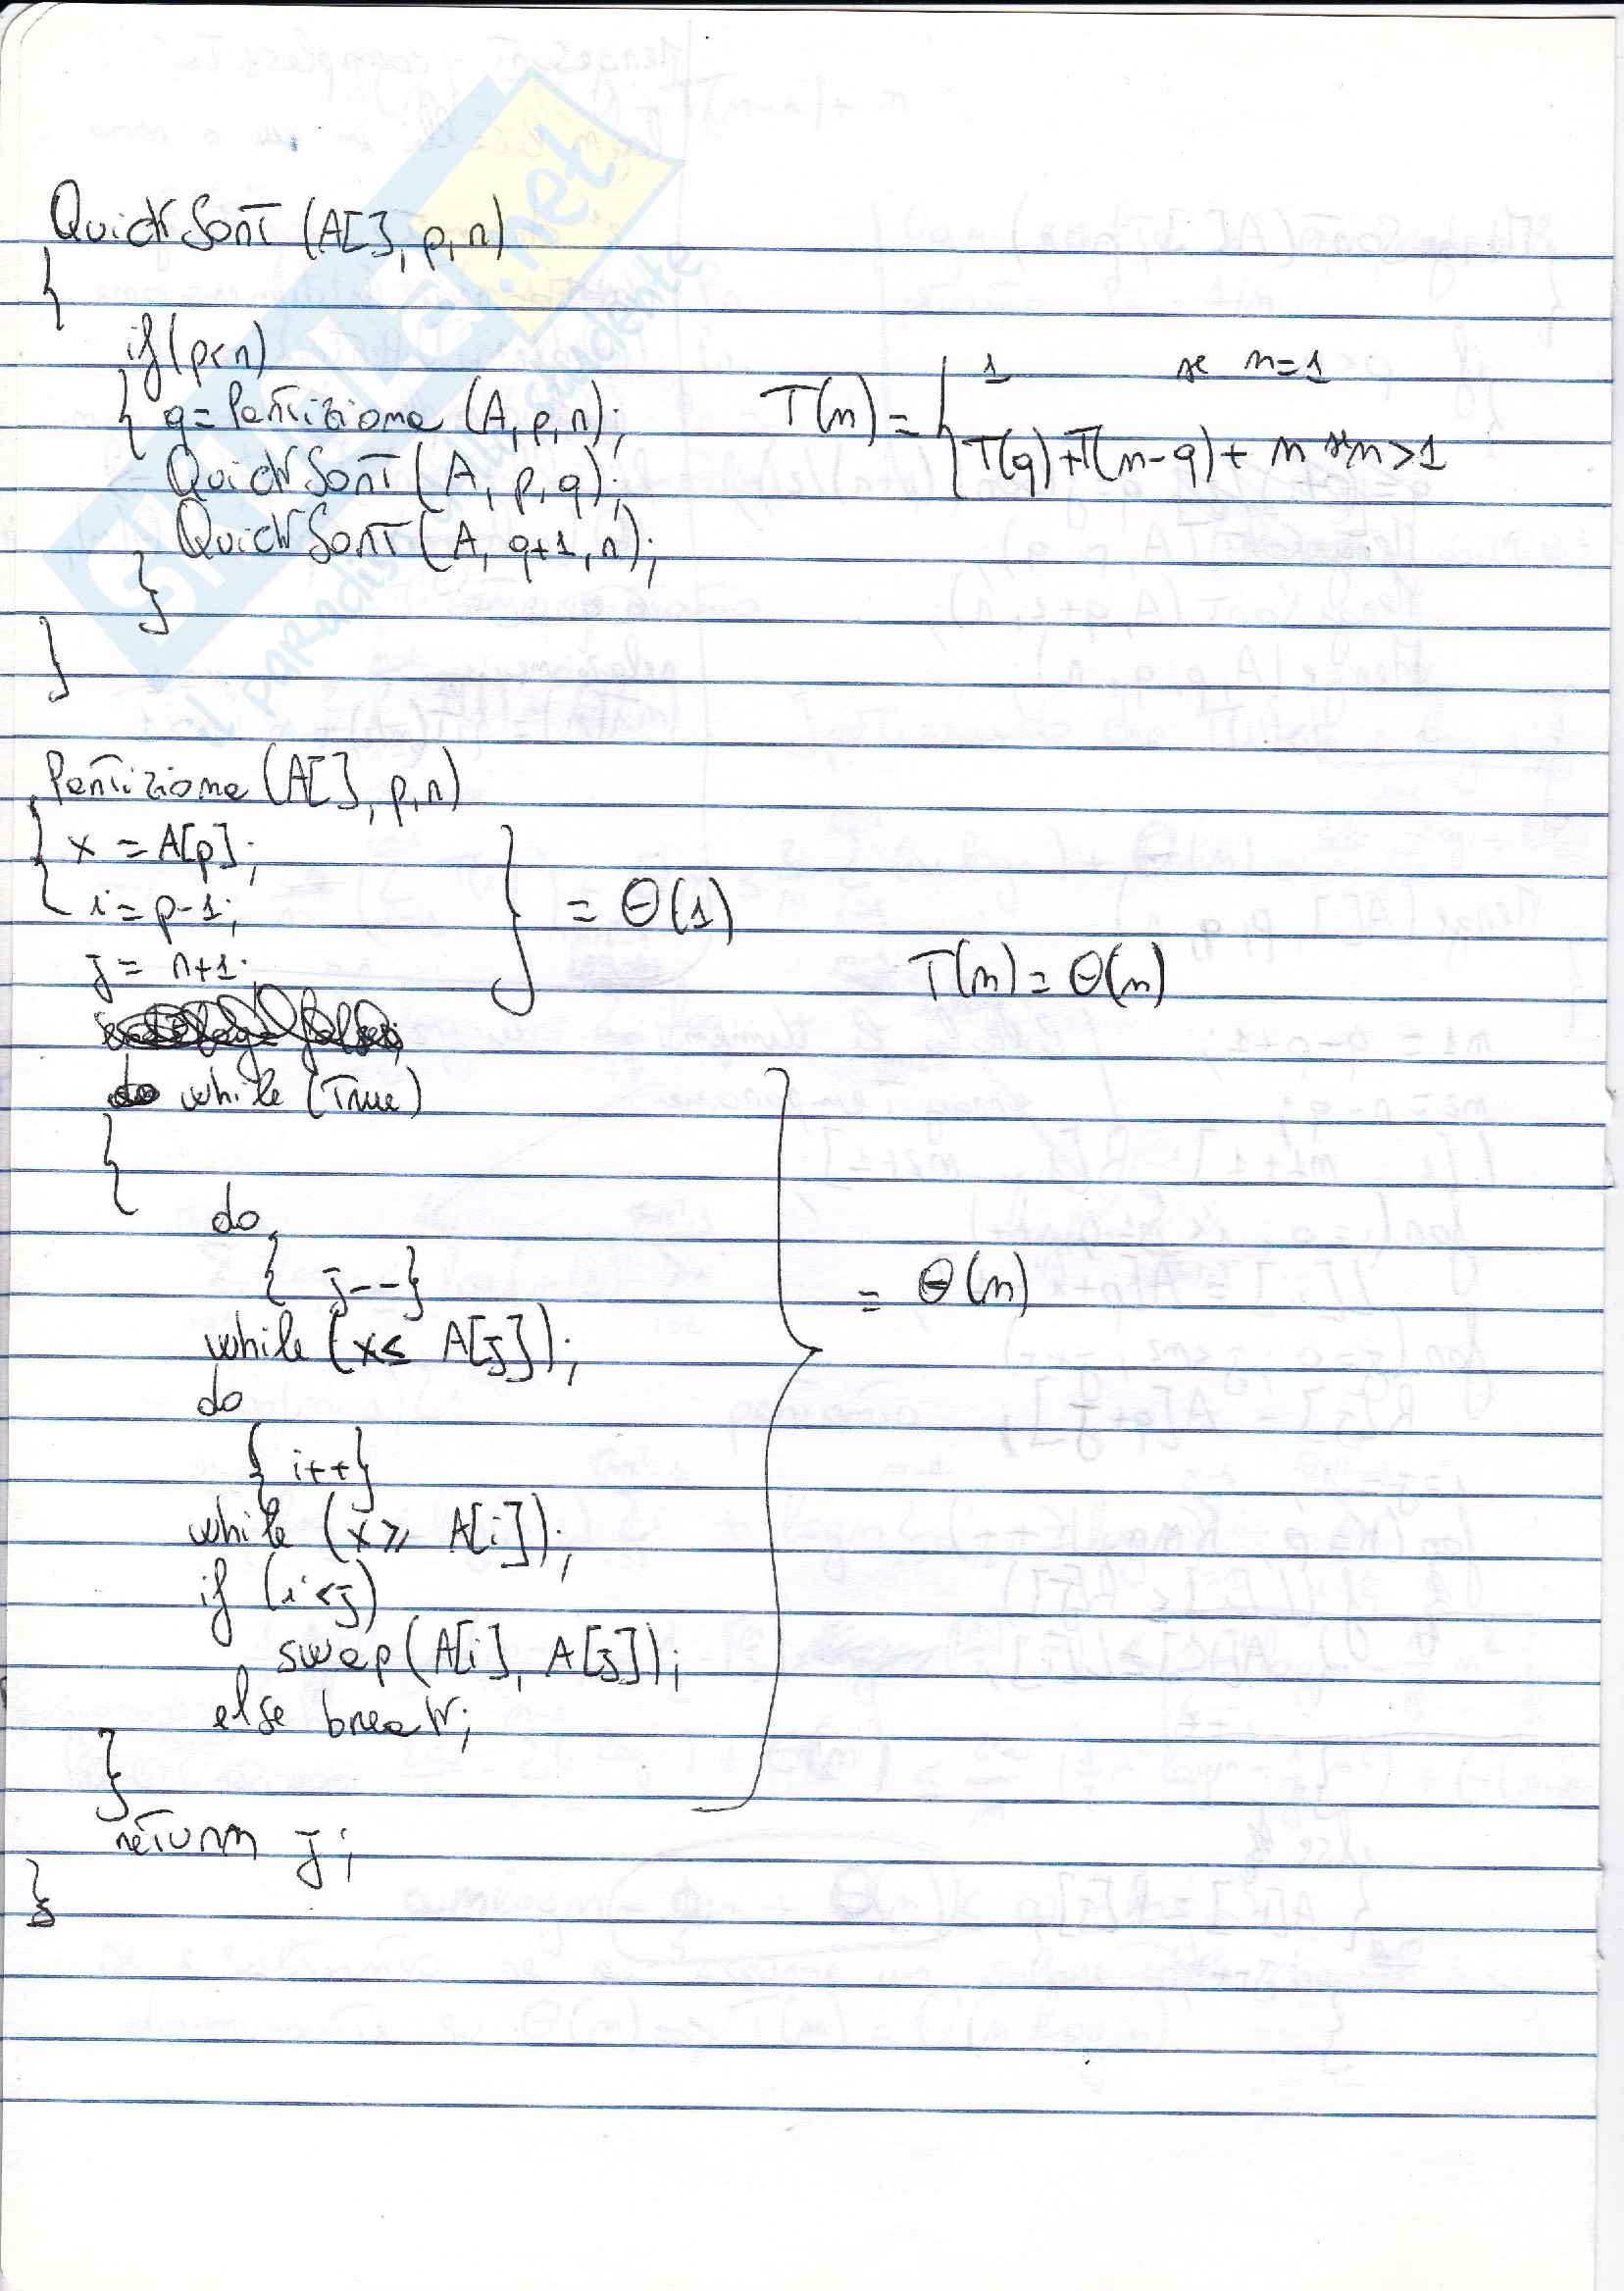 QuickSort (A[], p, r)
{
if (p<r)
{ q = Partiziona (A, p, r);
QuickSort (A, p, q);
QuickSort (A, q+1, r);
}
}
T(n) = { 1 se n=1
T(q)+T(n-q)+ n se n>1
Partiziona (A[], p, r)
{ x = A[p];
i = p-1;
j = r+1;
} = Θ(1)
T(n) = Θ(n)
while (True)
{
do
{ j-- }
while (x≤ A[j]);
do
{ i++ }
while (x≥ A[i]);
if (i<j)
swap (A[i], A[j]);
else break;
}
} = Θ(n)
return j;
}
SKUOLA.net
il paradiso dello studente